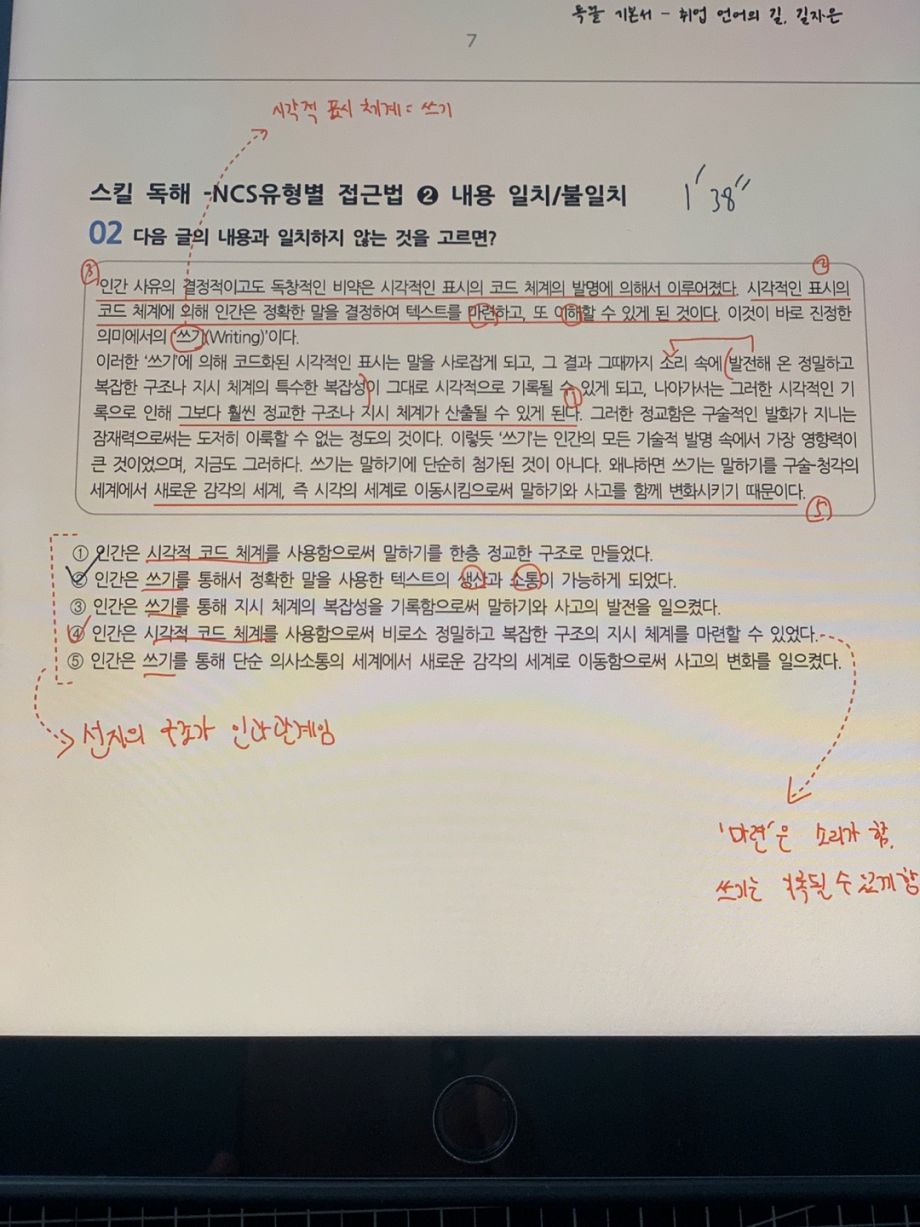 독끝 기본서 - 취업 언어의 길, 길자은
7
시각적 표시 체계 = 쓰기
스킬 독해 -NCS유형별 접근법 ❷ 내용 일치/불일치
1′ 38″
02 다음 글의 내용과 일치하지 않는 것을 고르면?
③
②
인간 사유의 결정적이고도 독창적인 비약은 시각적인 표시의 코드 체계의 발명에 의해서 이루어졌다. 시각적인 표시의
코드 체계에 의해 인간은 정확한 말을 결정하여 텍스트를 마련하고, 또 이해할 수 있게 된 것이다. 이것이 바로 진정한
의미에서의 '쓰기(Writing)'이다.
이러한 '쓰기'에 의해 코드화된 시각적인 표시는 말을 사로잡게 되고, 그 결과 그때까지 소리 속에 발전해 온 정밀하고
복잡한 구조나 지시 체계의 특수한 복잡성이 그대로 시각적으로 기록될 수 있게 되고, 나아가서는 그러한 시각적인 기
①
록으로 인해 그보다 훨씬 정교한 구조나 지시 체계가 산출될 수 있게 된다. 그러한 정교함은 구술적인 발화가 지니는
잠재력으로써는 도저히 이룩할 수 없는 정도의 것이다. 이렇듯 '쓰기'는 인간의 모든 기술적 발명 속에서 가장 영향력이
큰 것이었으며, 지금도 그러하다. 쓰기는 말하기에 단순히 첨가된 것이 아니다. 왜냐하면 쓰기는 말하기를 구술-청각의
세계에서 새로운 감각의 세계, 즉 시각의 세계로 이동시킴으로써 말하기와 사고를 함께 변화시키기 때문이다.
⑤
① 인간은 시각적 코드 체계를 사용함으로써 말하기를 한층 정교한 구조로 만들었다.
② 인간은 쓰기를 통해서 정확한 말을 사용한 텍스트의 생산과 소통이 가능하게 되었다.
③ 인간은 쓰기를 통해 지시 체계의 복잡성을 기록함으로써 말하기와 사고의 발전을 일으켰다.
④ 인간은 시각적 코드 체계를 사용함으로써 비로소 정밀하고 복잡한 구조의 지시 체계를 마련할 수 있었다.
⑤ 인간은 쓰기를 통해 단순 의사소통의 세계에서 새로운 감각의 세계로 이동함으로써 사고의 변화를 일으켰다.
선지의 구조가 인과관계임
'마련'은 소리가 함.
쓰기는 기록될 수 있게 함